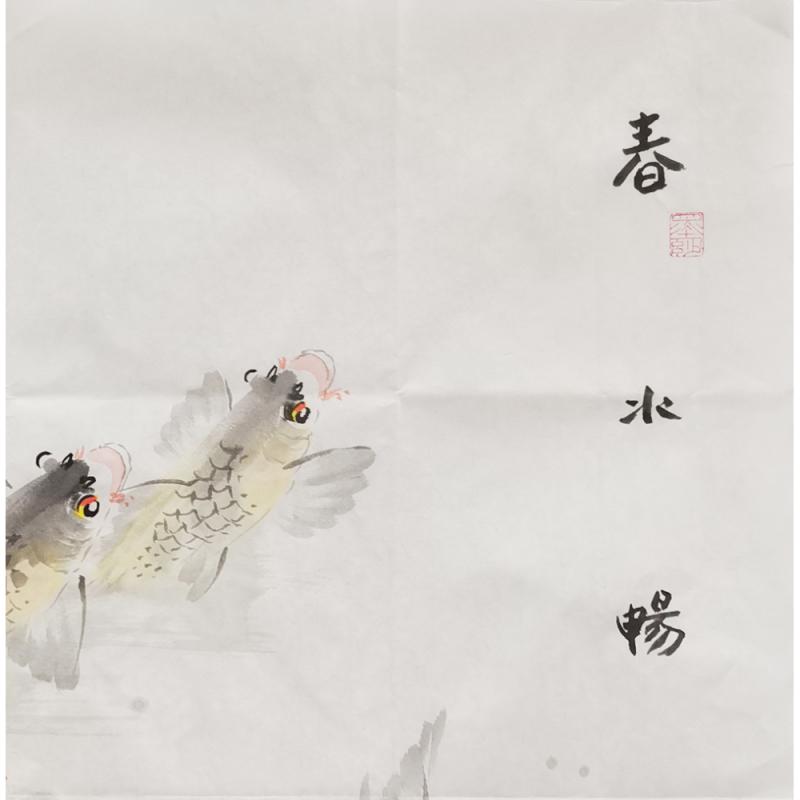 春水暢